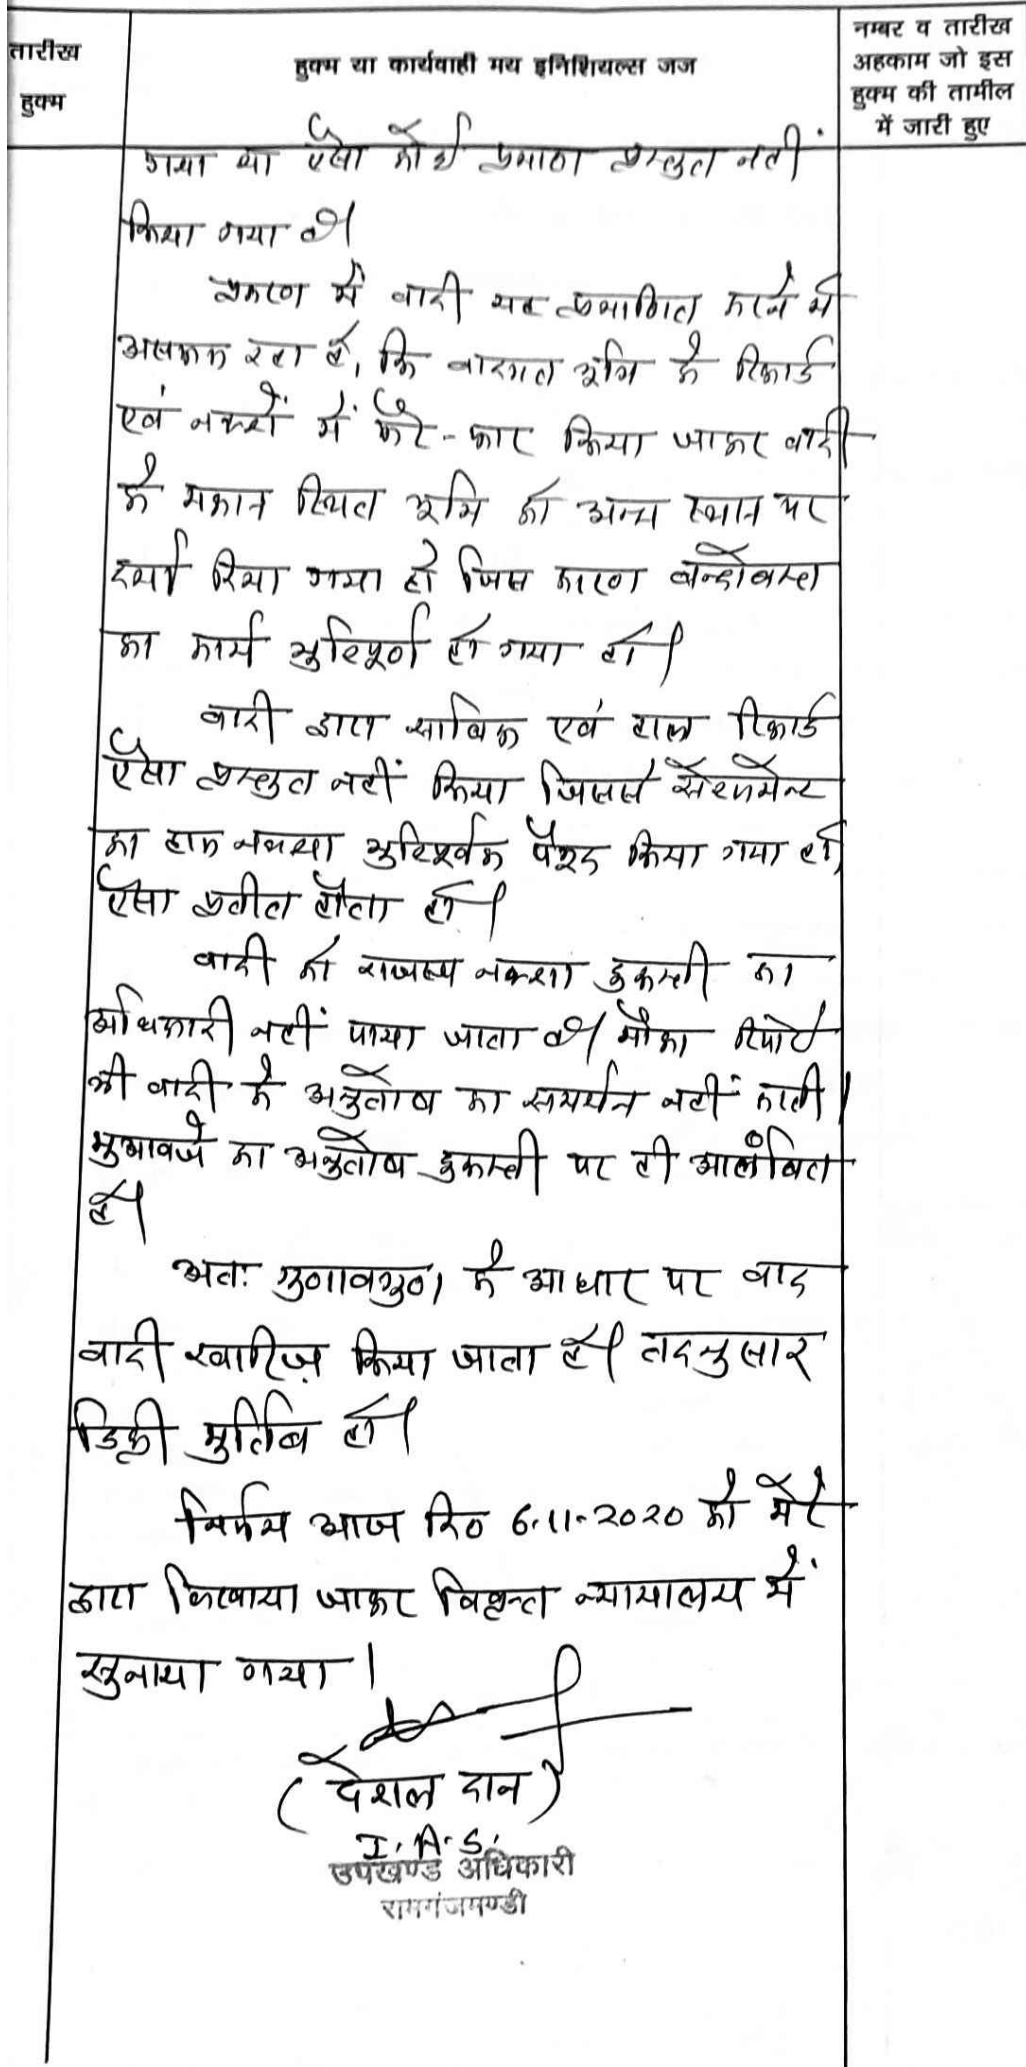 तारीख
हुक्म
हुक्म या कार्यवाही मय इनिशियल्स जज
नम्बर व तारीख
अहकाम जो इस
हुक्म की तामील
में जारी हुए
गया या ऐसा कोई प्रमाण प्रस्तुत नहीं
किया गया है।
प्रकरण में वादी यह प्रमाणित करने में
असफल रहा है, कि वादग्रस्त भूमि के रिकार्ड
एवं नक्शों में फेर-फार किया जाकर वादी
के मकान स्थित भूमि को अन्य स्थान पर
दर्शा दिया गया हो जिस कारण बन्दोबस्त
का कार्य त्रुटिपूर्ण हो गया हो।
वादी द्वारा साबिक एवं हाल रिकार्ड
ऐसा प्रस्तुत नहीं किया जिससे सेटलमेन्ट
का हाल नक्शा त्रुटिपूर्वक किया गया हो,
ऐसा प्रतीत होता हो।
वादी को राजस्व नक्शा दुरूस्ती का
अधिकारी नहीं पाया जाता है। मौका रिपोर्ट
भी वादी के अनुतोष का समर्थन नहीं करती।
मुआवजे का अनुतोष दुरूस्ती पर ही आलंबित
है।
अतः गुणावगुण के आधार पर वाद
वादी खारिज़ किया जाता है। तदनुसार
डिक्री मुर्तिब हो।
निर्णय आज दि० 6.11.2020 को मेरे
द्वारा लिखवाया जाकर विवृत्त न्यायालय में
सुनाया गया।
(देशल दान)
I.A.S.
उपखण्ड अधिकारी
रामगंजमण्डी